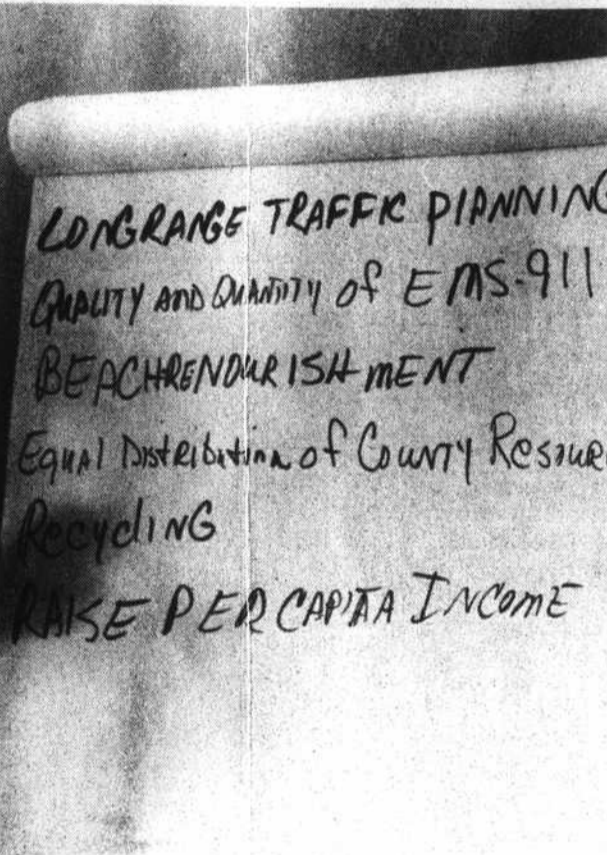 LONGRANGE TRAFFIC PLANNING
QUALITY AND QUANTITY of EMS-911
BEACHRENOURISHMENT
Equal Distribution of County
Recycling
RAISE PER CAPITA INCOME